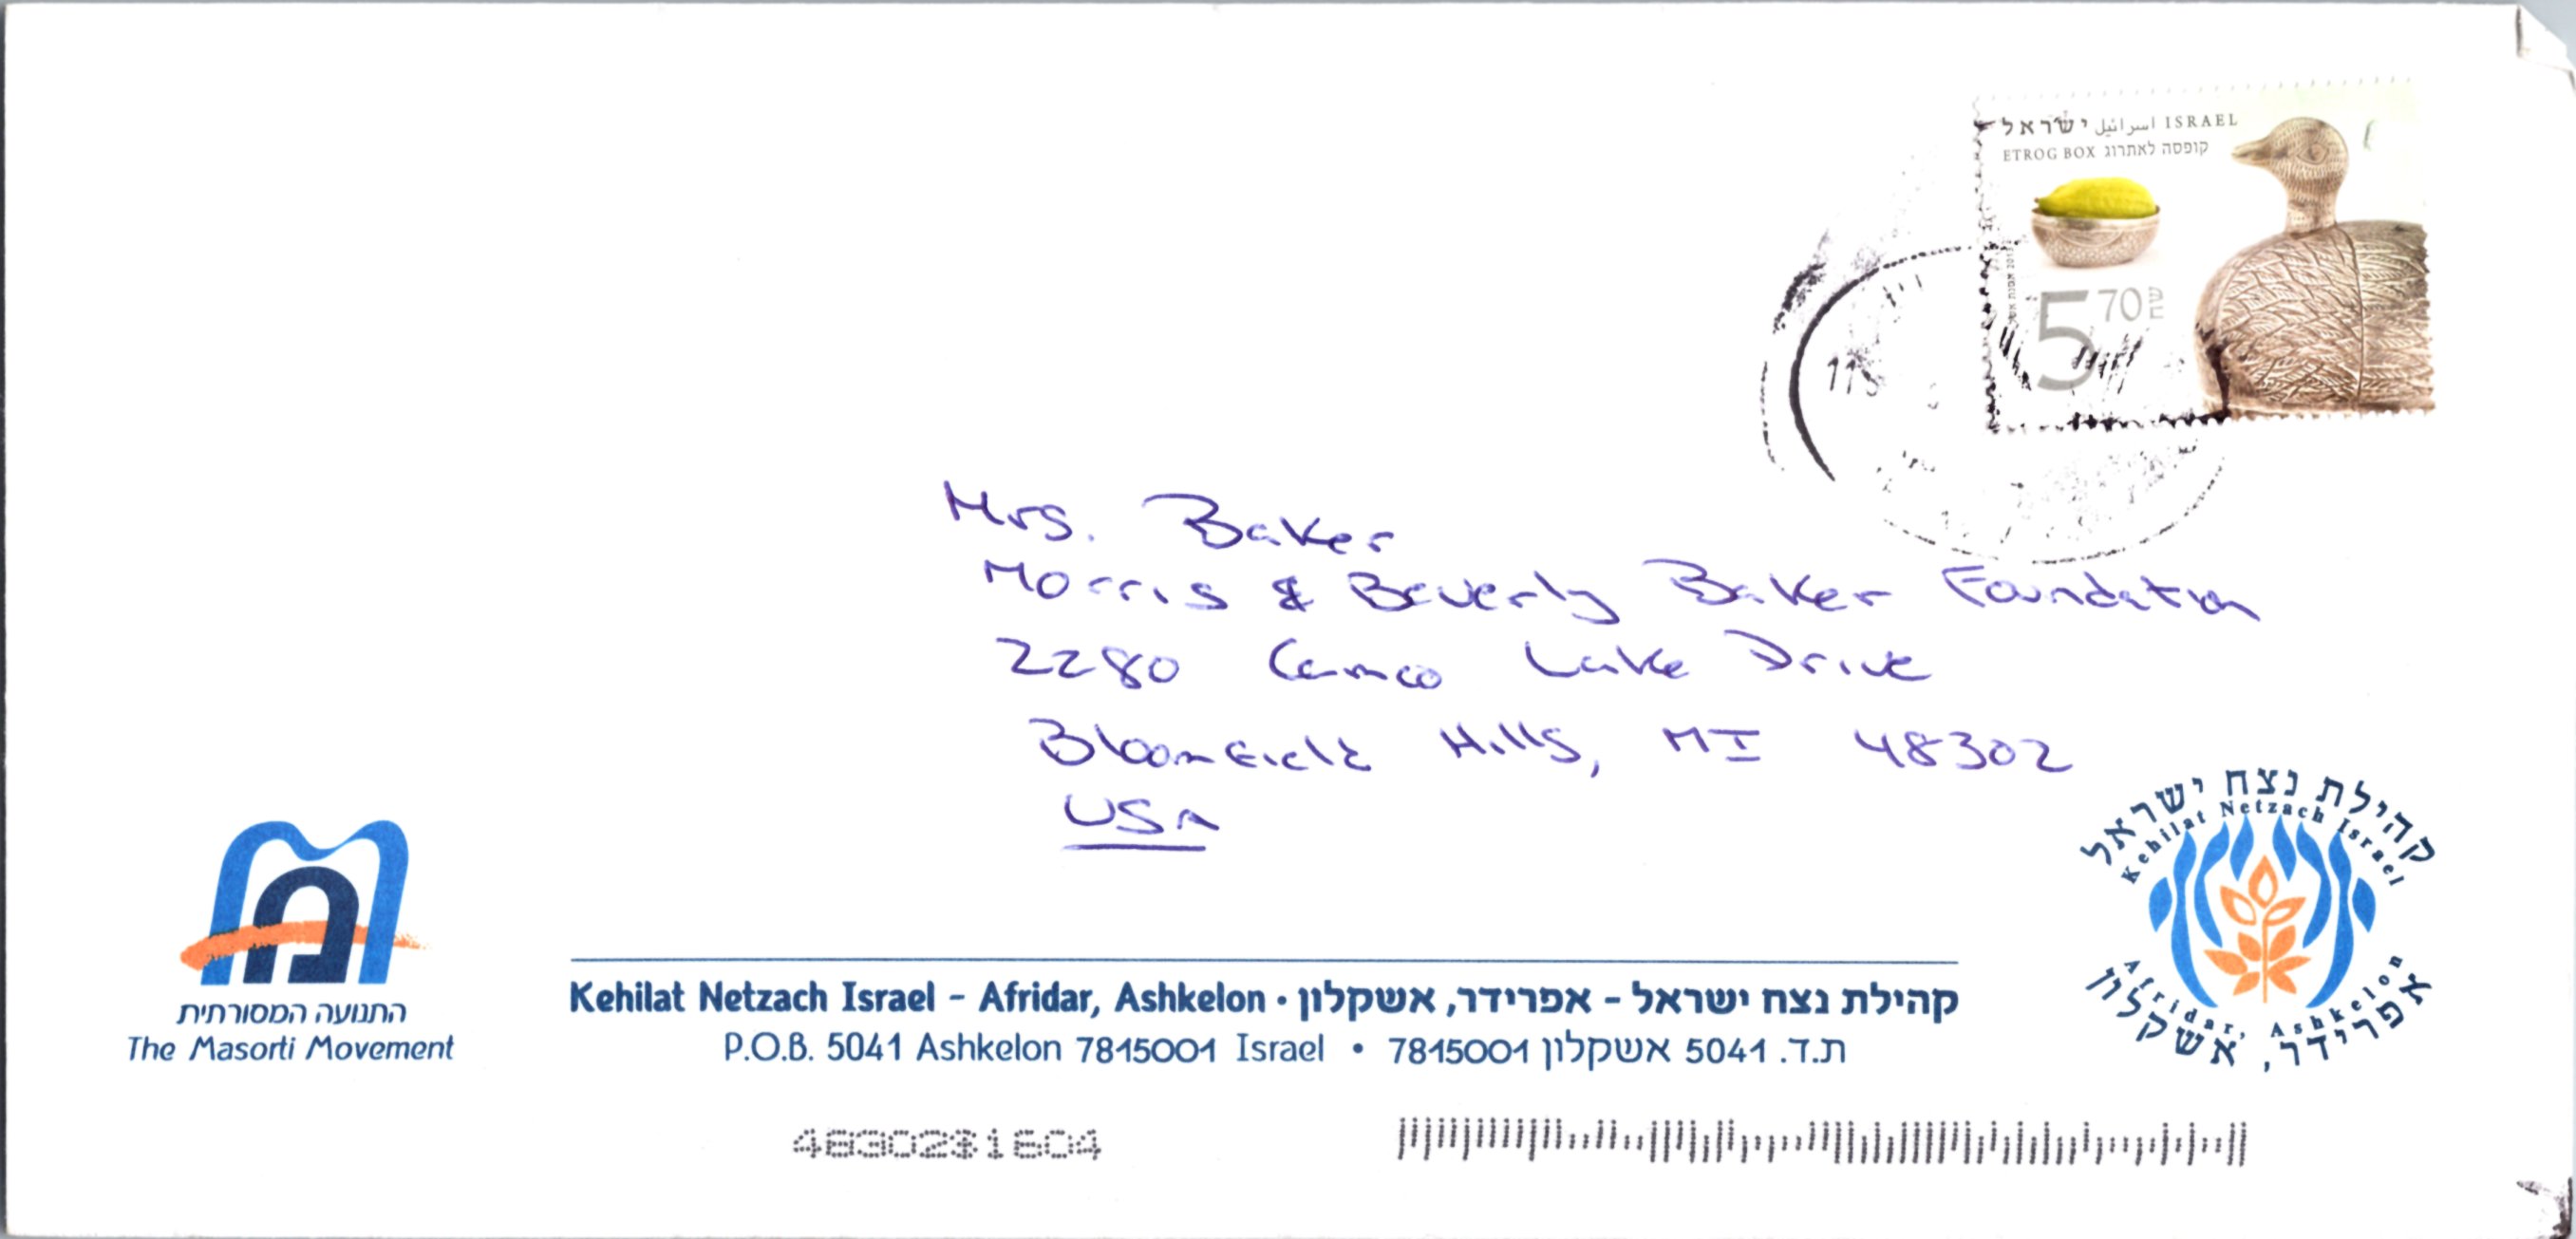 ישראל اسرائيل ISRAEL
ETROG BOX קופסה לאתרוג
5 70
Mrs. Baker
Morris & Beverly Baker Foundation
2280 Cameo Lake Drive
Bloomfield Hills, MI 48302
USA
קהילת נצח ישראל
Kehilat Netzach Israel
Afridar, Ashkelon
אפרידר, אשקלון
התנועה המסורתית
The Masorti Movement
Kehilat Netzach Israel - Afridar, Ashkelon • קהילת נצח ישראל - אפרידר, אשקלון
P.O.B. 5041 Ashkelon 7815001 Israel • ת.ד. 5041 אשקלון 7815001
48302$1604